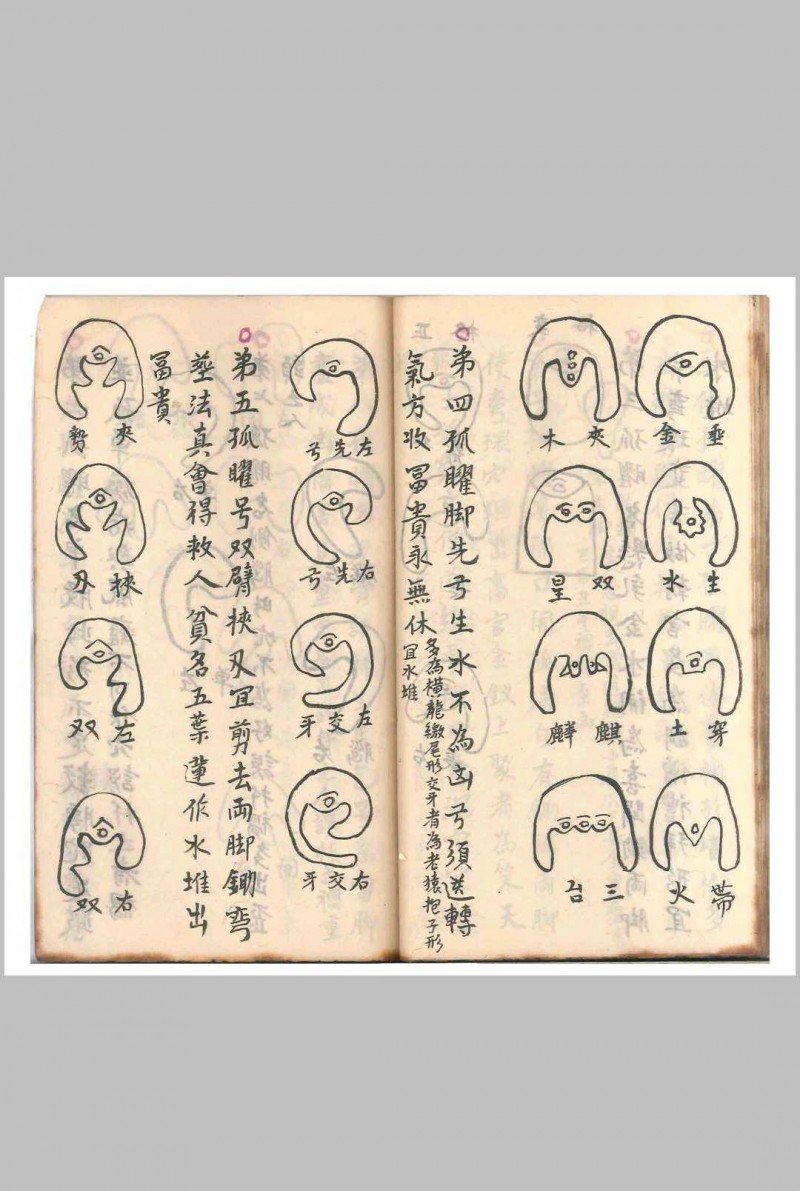 垂金
生水
穿土
帶火
夾木
双星
麒麟
三台
第四孤曜脚先弓生水不為凶弓須送轉
氣方收冨貴永無休
多為橫龍繳尾形交牙者為老猿抱子形
宜水堆
左先弓
右先弓
左交牙
右交牙
第五孤曜号双臂挾刄宜剪去両脚鋤彎
塟法真會得救人貧名五葉蓮作水堆出
冨貴
夾勢
挾刄
左双
右双